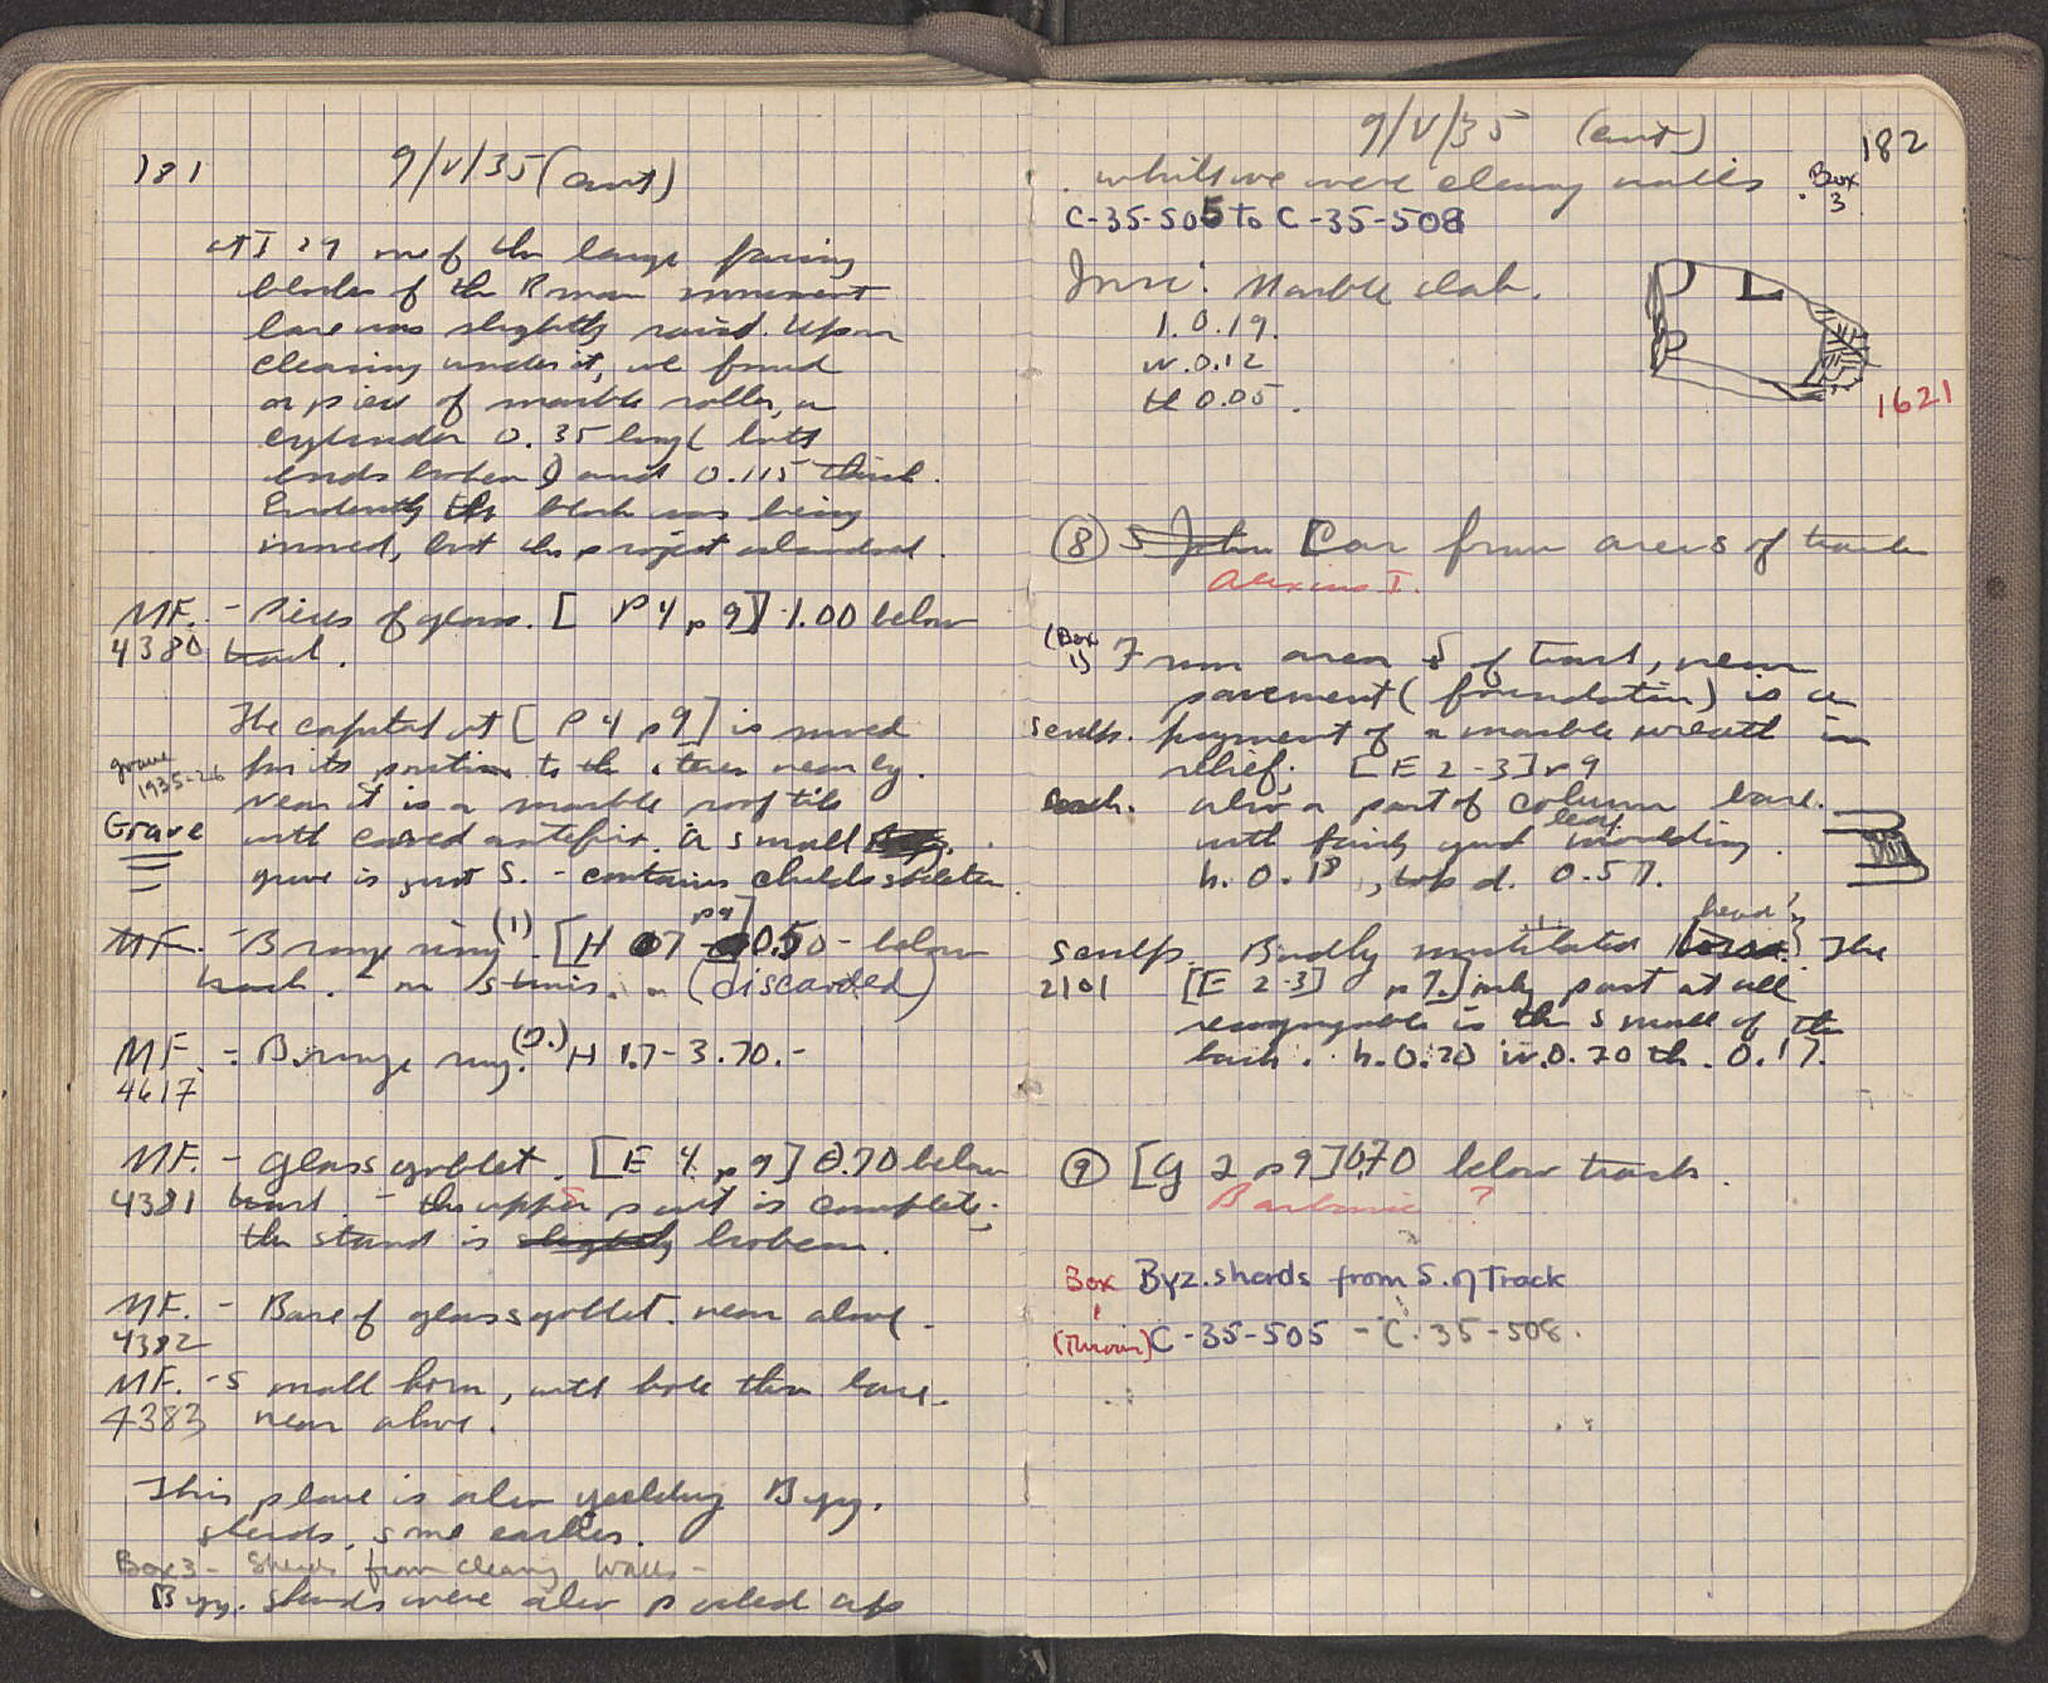 181
9/V/35 (cont)
at I 29 one of the large paving
blocks of the Roman monument
base was slightly raised. Upon
clearing under it, we found
a piece of marble roller, a
cylinder 0.35 long (both
ends broken) and 0.115 thick.
Evidently the block was being
moved, but the project abandoned.
MF. - Pieces of glass. [ P 4 p 9] 1.00 below
4380 track.
The capital at [ P 4 p 9] is moved
for its position to the stoa nearby.
grave
1935-26
Near it is a marble roof tile
Grave with carved antefix. A small
grave is just S. - contains childs skeleton.
MF. - Bronze ring (1) [H 07 p9] 0.50 - below
track. - on stairs. (discarded)
MF. - Bronze ring. (2.) H 17 - 3.70. -
4617
MF. - Glass goblet. [E 4 p 9] 0.70 below
4381 track. - the upper part is complete;
the stand is slightly broken.
MF. - Base of glass goblet. near above.
4382
MF. - Small horn, with hole thru base.
4383 near above.
This place is also yielding Byz.
sherds, some earlier.
Box 3 - Sherds from cleaning walls -
Byz. sherds were also picked up
9/V/35 (cont)
182
whilst we were cleaning walls
Box
3
C-35-505 to C-35-508
Inscr: Marble slab.
l. 0.19.
w. 0.12
th 0.05.
P L
P
1621
⑧ S John Car from area S of track
Alexius I.
(Box
1) From area S of track, near
pavement (foundation) is a
Sculp. fragment of a marble wreath in
relief. [E 2-3] p 9
Arch. also a part of column base.
with fairly good leaf moulding.
h. 0.18, top d. 0.57.
Sculp. Badly mutilated torso. head? The
2101 [E 2-3] p 9.] only part at all
recognizable is the small of the
back. h. 0.20 w. 0.20 th. 0.17.
⑨ [G 2 p 9] 0.70 below track.
Barbaric ?
Box Byz. sherds from S. of Track
1
(Thrown) C-35-505 - C-35-508.